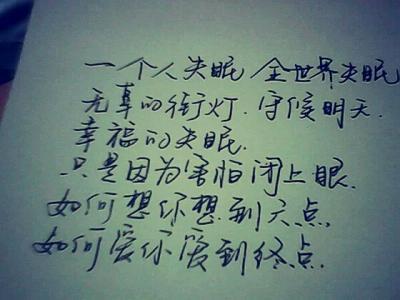 一个人失眠 全世界失眠
无辜的街灯.守候明天.
幸福的失眠.
只是因为害怕闭上眼.
如何想你想到六点.
如何爱你爱到终点.